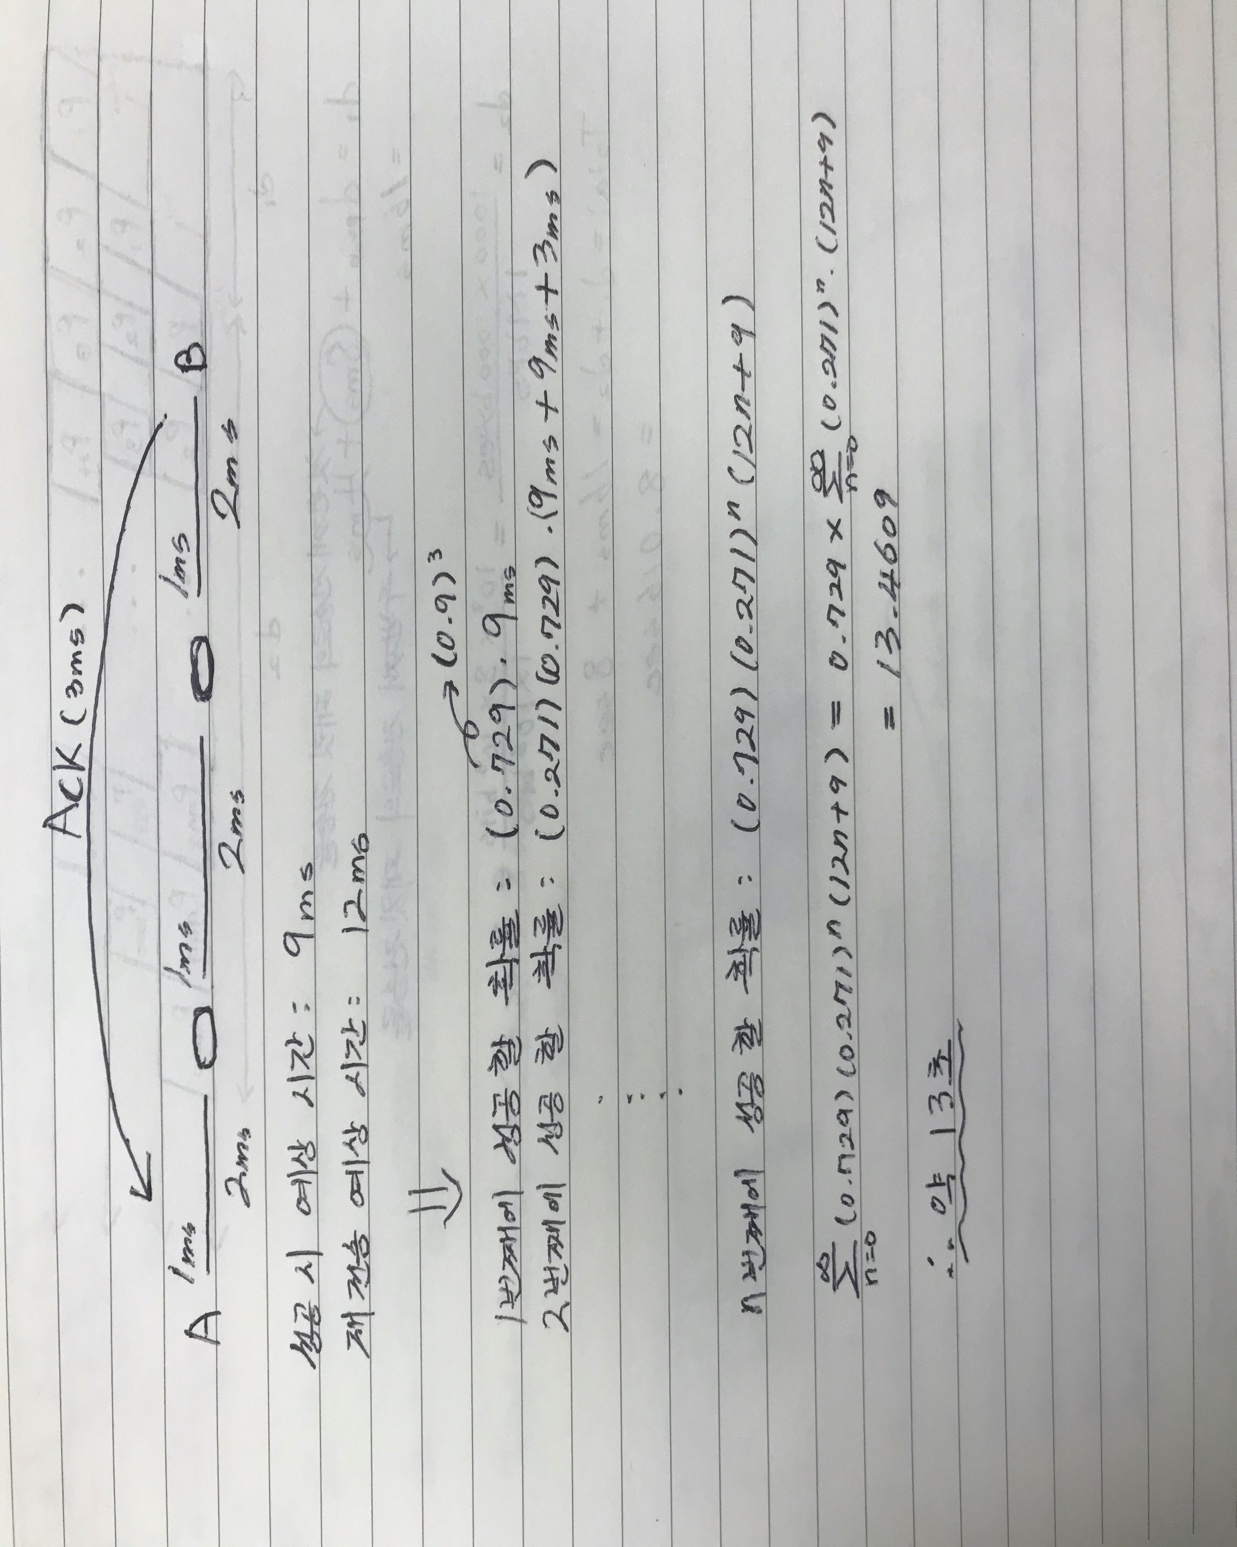 ACK (3ms)
A 1ms 1ms 1ms B
2ms 2ms 2ms
성공 시 예상 시간 : 9ms
재전송 예상 시간 : 12ms
⇓ → (0.9)³
1번째에 성공할 확률 : (0.729) . 9ms
2번째에 성공 할 확률 : (0.271)(0.729) . (9ms + 9ms + 3ms)
n번째에 성공 할 확률 : (0.729)(0.271)ⁿ (12n+9)
∞ ∑ n=0 (0.729)(0.271)ⁿ (12n+9) = 0.729 × ∞ ∑ n=0 (0.271)ⁿ . (12n+9)
= 13.4609
∴ 약 13초